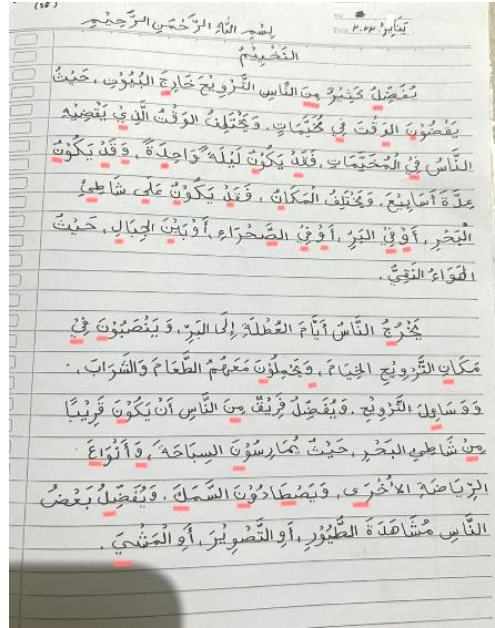 (٤٥)
يَنَايِرُ ٢٠٢٣
بِسْمِ اللَّهِ الرَّحْمَنِ الرَّحِيْمِ
التَّخْيِيْمُ
يُفَضِّلُ كَثِيْرٌ مِنَ النَّاسِ التَّرْوِيْحَ خَارِجَ البُيُوْتِ، حَيْثُ
يَقْضُوْنَ الوَقْتَ فِيْ مُخَيَّمَاتٍ. وَيَخْتَلِفُ الوَقْتُ الَّذِيْ يَقْضِيْهِ
النَّاسُ فِيْ المُخَيَّمَاتِ، فَقَدْ يَكُوْنُ لَيْلَةً وَاحِدَةً، وَقَدْ يَكُوْنُ
عِدَّةَ أَسَابِيْعَ. وَيَخْتَلِفُ الْمَكَانُ، فَقَدْ يَكُوْنُ عَلَى شَاطِئِ
الْبَحْرِ، أَوْ فِيْ البَرِّ، أَوْ فِيْ الصَّحْرَاءِ، أَوْ بَيْنَ الجِبَالِ، حَيْثُ
الهَوَاءُ النَّقِيُّ.
يَخْرُجُ النَّاسُ أَيَّامَ العُطْلَةِ إِلَى البَرِّ، وَيَنْصَبُوْنَ فِيْ
مَكَانِ التَّرْوِيْحِ الخِيَامَ، وَيَحْمِلُوْنَ مَعَهُمُ الطَّعَامَ وَالشَّرَابَ،
وَوَسَائِلَ التَّرْوِيْحِ. وَيُفَضِّلُ فَرِيْقٌ مِنَ النَّاسِ أَنْ يَكُوْنَ قَرِيْبًا
مِنْ شَاطِئِ البَحْرِ، حَيْثُ يُمَارِسُوْنَ السِبَاحَةَ، وَأَنْوَاعَ
الرِّيَاضَةِ الأُخْرَى، وَيَصْطَادُوْنَ السَّمَكَ. وَيُفَضِّلُ بَعْضُ
النَّاسِ مُشَاهَدَةَ الطُّيُوْرِ، أَوِ التَّصْوِيْرَ، أَوِ الْمَشْيَ.